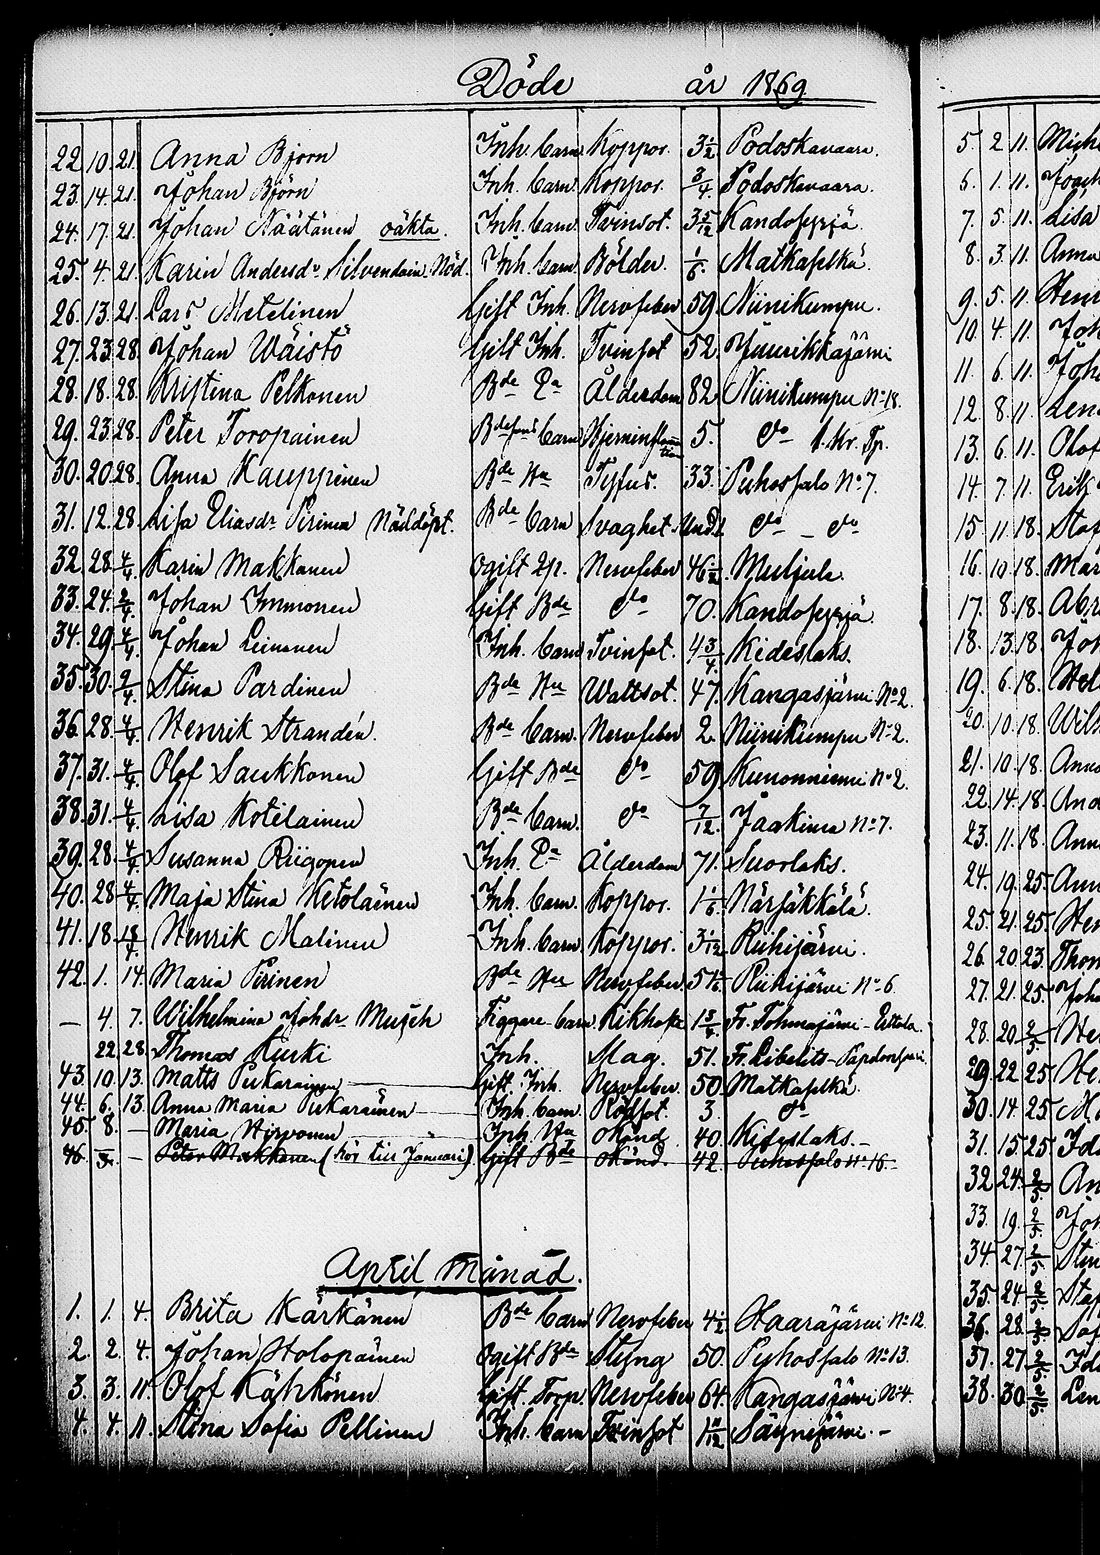 Döde år 1869
22. 10. 21. Anna Björn Inh. Barn Koppor. 3 1/2 Podoskavaara.
23. 14. 21. Johan Björn Inh. Barn Koppor. 3/4 Podoskavaara.
24. 17. 21. Johan Näätänen oäkta. Inh. Barn Tvinsot. 3 5/12 Kandosyrjä.
25. 4. 21. Karin Andersdr Silvendoin. Nöd. Inh. Barn Bölder. 1/6. Matkaselkä.
26. 13. 21. Lars Metelinen Gift Inh. Nervfeber 59. Niinikumpu.
27. 23. 28. Johan Wäistö Gift Inh. Tvinsot 52. Juurikkajärvi
28. 18. 28. Kristina Pelkonen Bde Ea Ålderdom 82. Niinikumpu No 18.
29. 23. 28. Peter Toropainen Barn 5. do 1. Kr. Tp.
30. 20. 28. Anna Kauppinen Bde Hu Tyfus. 33. Puhossalo No 7.
31. 12. 28. Lisa Eliasdr Pirinen Nöddöpt. Bde Barn Svaghet. do - do
32. 28. 4/4. Karin Makkonen Ogift Pp. Nervfeber 46 1/2 Muljula.
33. 24. 4/4. Johan Immonen Gift Bde do 70. Kandosyrjä.
34. 29. 4/4. Johan Leinonen Inh. Barn Tvinsot. 4 3/4. Kideslaks.
35. 30. 4/4. Stina Pardinen Bde Hu Wattsot. 47. Kangasjärvi No 2.
36. 28. 4/4. Henrik Strandén. Bde Barn. Nervfeber 2. Niinikumpu No 2.
37. 31. 4/4. Olof Saukkonen Gift Bde do 59. Kunonniemi No 2.
38. 31. 4/4. Lisa Kotilainen Bde Barn. do 7/12. Jaakima No 7.
39. 28. 4/4. Susanna Riigonen Inh. Ea Ålderdom 71. Suorlaks.
40. 28. 4/4. Maja Stina Ketolainen Inh. Barn. Koppor. 1 1/6. Närsäkkälä.
41. 18. 18/4. Henrik Malinen Inh. Barn. Koppor. 3 1/12. Ruhijärvi.
42. 1. 14. Maria Pirinen Bde Hu Nervfeber. Ruhijärvi No 6.
— 4. 7. Wilhelmina Johdr Musch Barn Kikhosta 1 3/4. Fr. Tohmajärvi
22. 28. Thomas Kurki Inh. Slag. 51. Fr. Libelits
43. 10. 13. Matts Pukarainen Gift. Inh. Nervfeber. 50. Matkaselkä.
44. 6. 13. Anna Maria Pukarainen Inh. Barn. Rödsot. 3. do
45. 8. — Maria Hirvonen Inh. Ha okänd 40. Kideslaks.
46. 3. — Peter Makkonen (hör till Januari) Gift Bde okänd. 42. Puhossalo No 16.
April Månad.
1. 1. 4. Brita Karkänen Bde Barn Nervfeber 4 1/2 Haarajärvi No 12.
2. 2. 4. Johan Holopainen Ogift Bde Styng 50. Pyhossalo No 13.
3. 3. 11. Olof Kähkönen Gift Torp. Nervfeber 64. Kangasjärvi No 4.
4. 4. 11. Stina Sofia Pellinen Inh. Barn Tvinsot Säynejärvi.
5. 2. 11.
6. 1. 11.
7. 5. 11. Lisa
8. 3. 11. Anna
9. 5. 11.
10. 4. 11.
11. 6. 11.
12. 8. 11.
13. 6. 11. Olof
14. 7. 11.
15. 11. 18.
16. 10. 18.
17. 8. 18.
18. 13. 18.
19. 6. 18.
20. 10. 18.
21. 10. 18.
22. 14. 18.
23. 11. 18.
24. 19. 25.
25. 21. 25.
26. 20. 23.
27. 21. 25.
28. 20. 2/5.
29. 22. 25.
30. 14. 25.
31. 15. 25.
32. 24. 2/5.
33. 19. 2/5.
34. 27. 2/5.
35. 24. 2/5.
36. 28. 2/5.
37. 27. 2/5.
38. 30. 2/5.